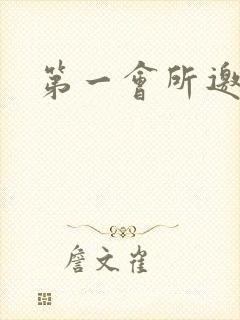 第一會所邀
詹文雀